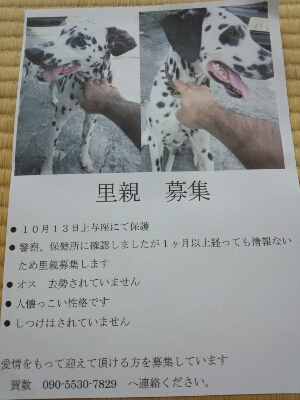 里親　募集
● １０月１３日上与座にて保護
● 警察、保健所に確認しましたが１ヶ月以上経っても情報ない
ため里親募集します
● オス　去勢されていません
● 人懐っこい性格です
● しつけはされていません
愛情をもって迎えて頂ける方を募集しています
賀数　090-5530-7829　へ連絡ください。